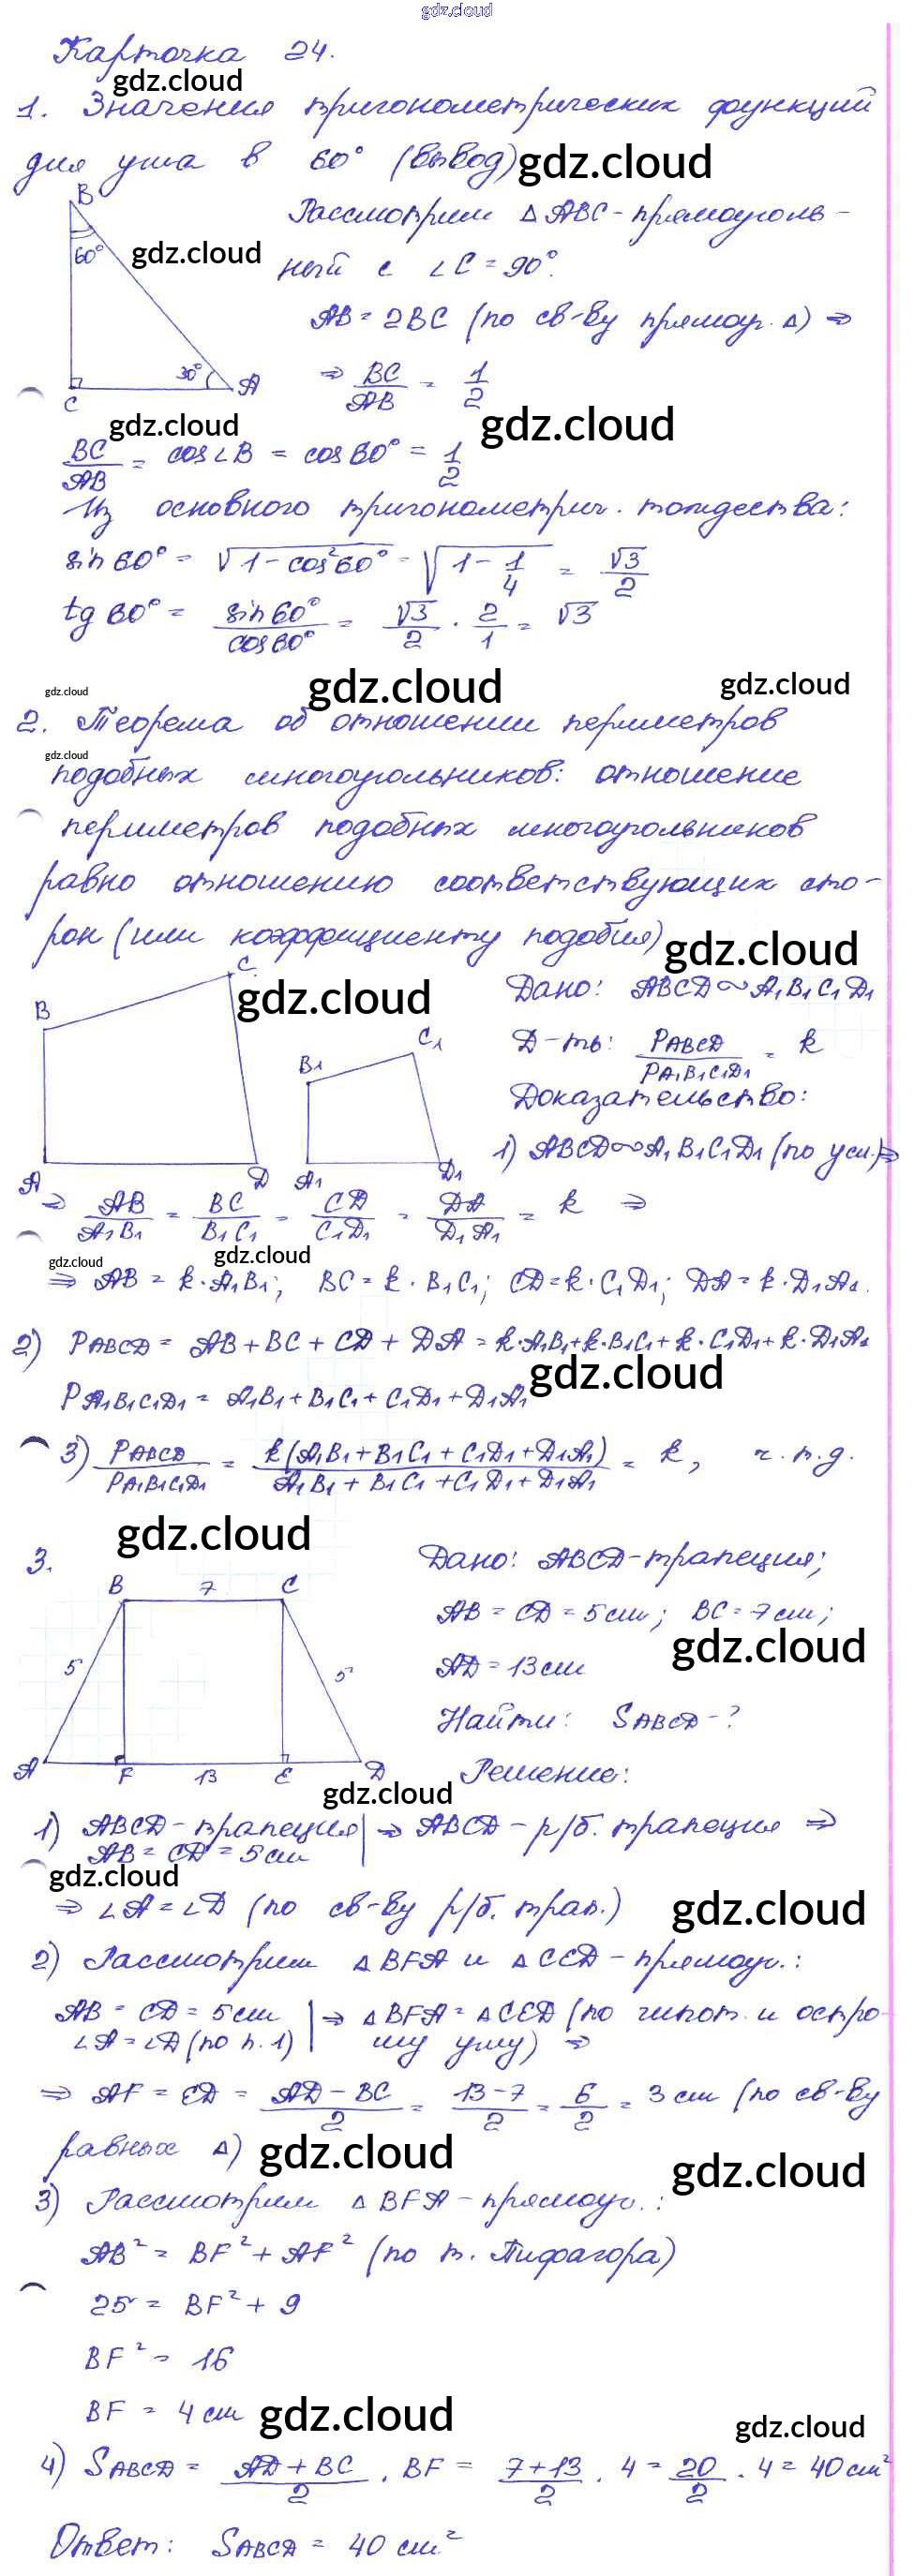 gdz.cloud
Карточка 24.
gdz.cloud
1. Значения тригонометрических функций
для угла в 60° (вывод) gdz.cloud
B
60°
30°
C
A
gdz.cloud
Рассмотрим Δ ABC - прямоуголь-
ный с ∠C = 90°.
AB = 2BC (по св-ву прямоуг. Δ) ⇒
⇒ BC/AB = 1/2
gdz.cloud gdz.cloud
BC/AB = cos∠B = cos 60° = 1/2
Из основного тригонометрич. тождества:
sin 60° = √(1 - cos²60°) = √(1 - 1/4) = √3/2
tg 60° = sin 60°/cos 60° = √3/2 · 2/1 = √3
gdz.cloud gdz.cloud gdz.cloud
2. Теорема об отношении периметров
gdz.cloud
подобных многоугольников: отношение
периметров подобных многоугольников
равно отношению соответствующих сто-
рон (или коэффициенту подобия) gdz.cloud
B
C
A
D
gdz.cloud
B1
C1
A1
D1
Дано: ABCD ∾ A1B1C1D1
Д-ть: PABCD/PA1B1C1D1 = k
Доказательство:
1) ABCD ∾ A1B1C1D1 (по усл.) ⇒
⇒ AB/A1B1 = BC/B1C1 = CD/C1D1 = DA/D1A1 = k ⇒
gdz.cloud gdz.cloud
⇒ AB = k·A1B1; BC = k·B1C1; CD = k·C1D1; DA = k·D1A1.
2) PABCD = AB + BC + CD + DA = k·A1B1 + k·B1C1 + k·C1D1 + k·D1A1
gdz.cloud
PA1B1C1D1 = A1B1 + B1C1 + C1D1 + D1A1
3) PABCD/PA1B1C1D1 = k(A1B1 + B1C1 + C1D1 + D1A1)/A1B1 + B1C1 + C1D1 + D1A1 = k, ч.т.д.
gdz.cloud
3.
B 7 C
5
5
A F 13 E D
Дано: ABCD - трапеция;
AB = CD = 5см; BC = 7см;
gdz.cloud
AD = 13см
Найти: SABCD - ?
Решение:
gdz.cloud
1) ABCD - трапеция | ⇒ ABCD - р/б. трапеция ⇒
AB = CD = 5см
gdz.cloud gdz.cloud
⇒ ∠A = ∠D (по св-ву р/б. трап.)
2) Рассмотрим Δ BFA и Δ CED - прямоуг.:
AB = CD = 5см | ⇒ Δ BFA = Δ CED (по гипот. и остро-
∠A = ∠D (по п. 1) | му углу) ⇒
⇒ AF = ED = AD - BC/2 = 13 - 7/2 = 6/2 = 3 см (по св-ву
равных Δ) gdz.cloud gdz.cloud
3) Рассмотрим Δ BFA - прямоуг.:
AB² = BF² + AF² (по т. Пифагора)
25 = BF² + 9
BF² = 16
BF = 4 см gdz.cloud gdz.cloud
4) SABCD = AD + BC/2 · BF = 7 + 13/2 · 4 = 20/2 · 4 = 40 см²
Ответ: SABCD = 40 см²